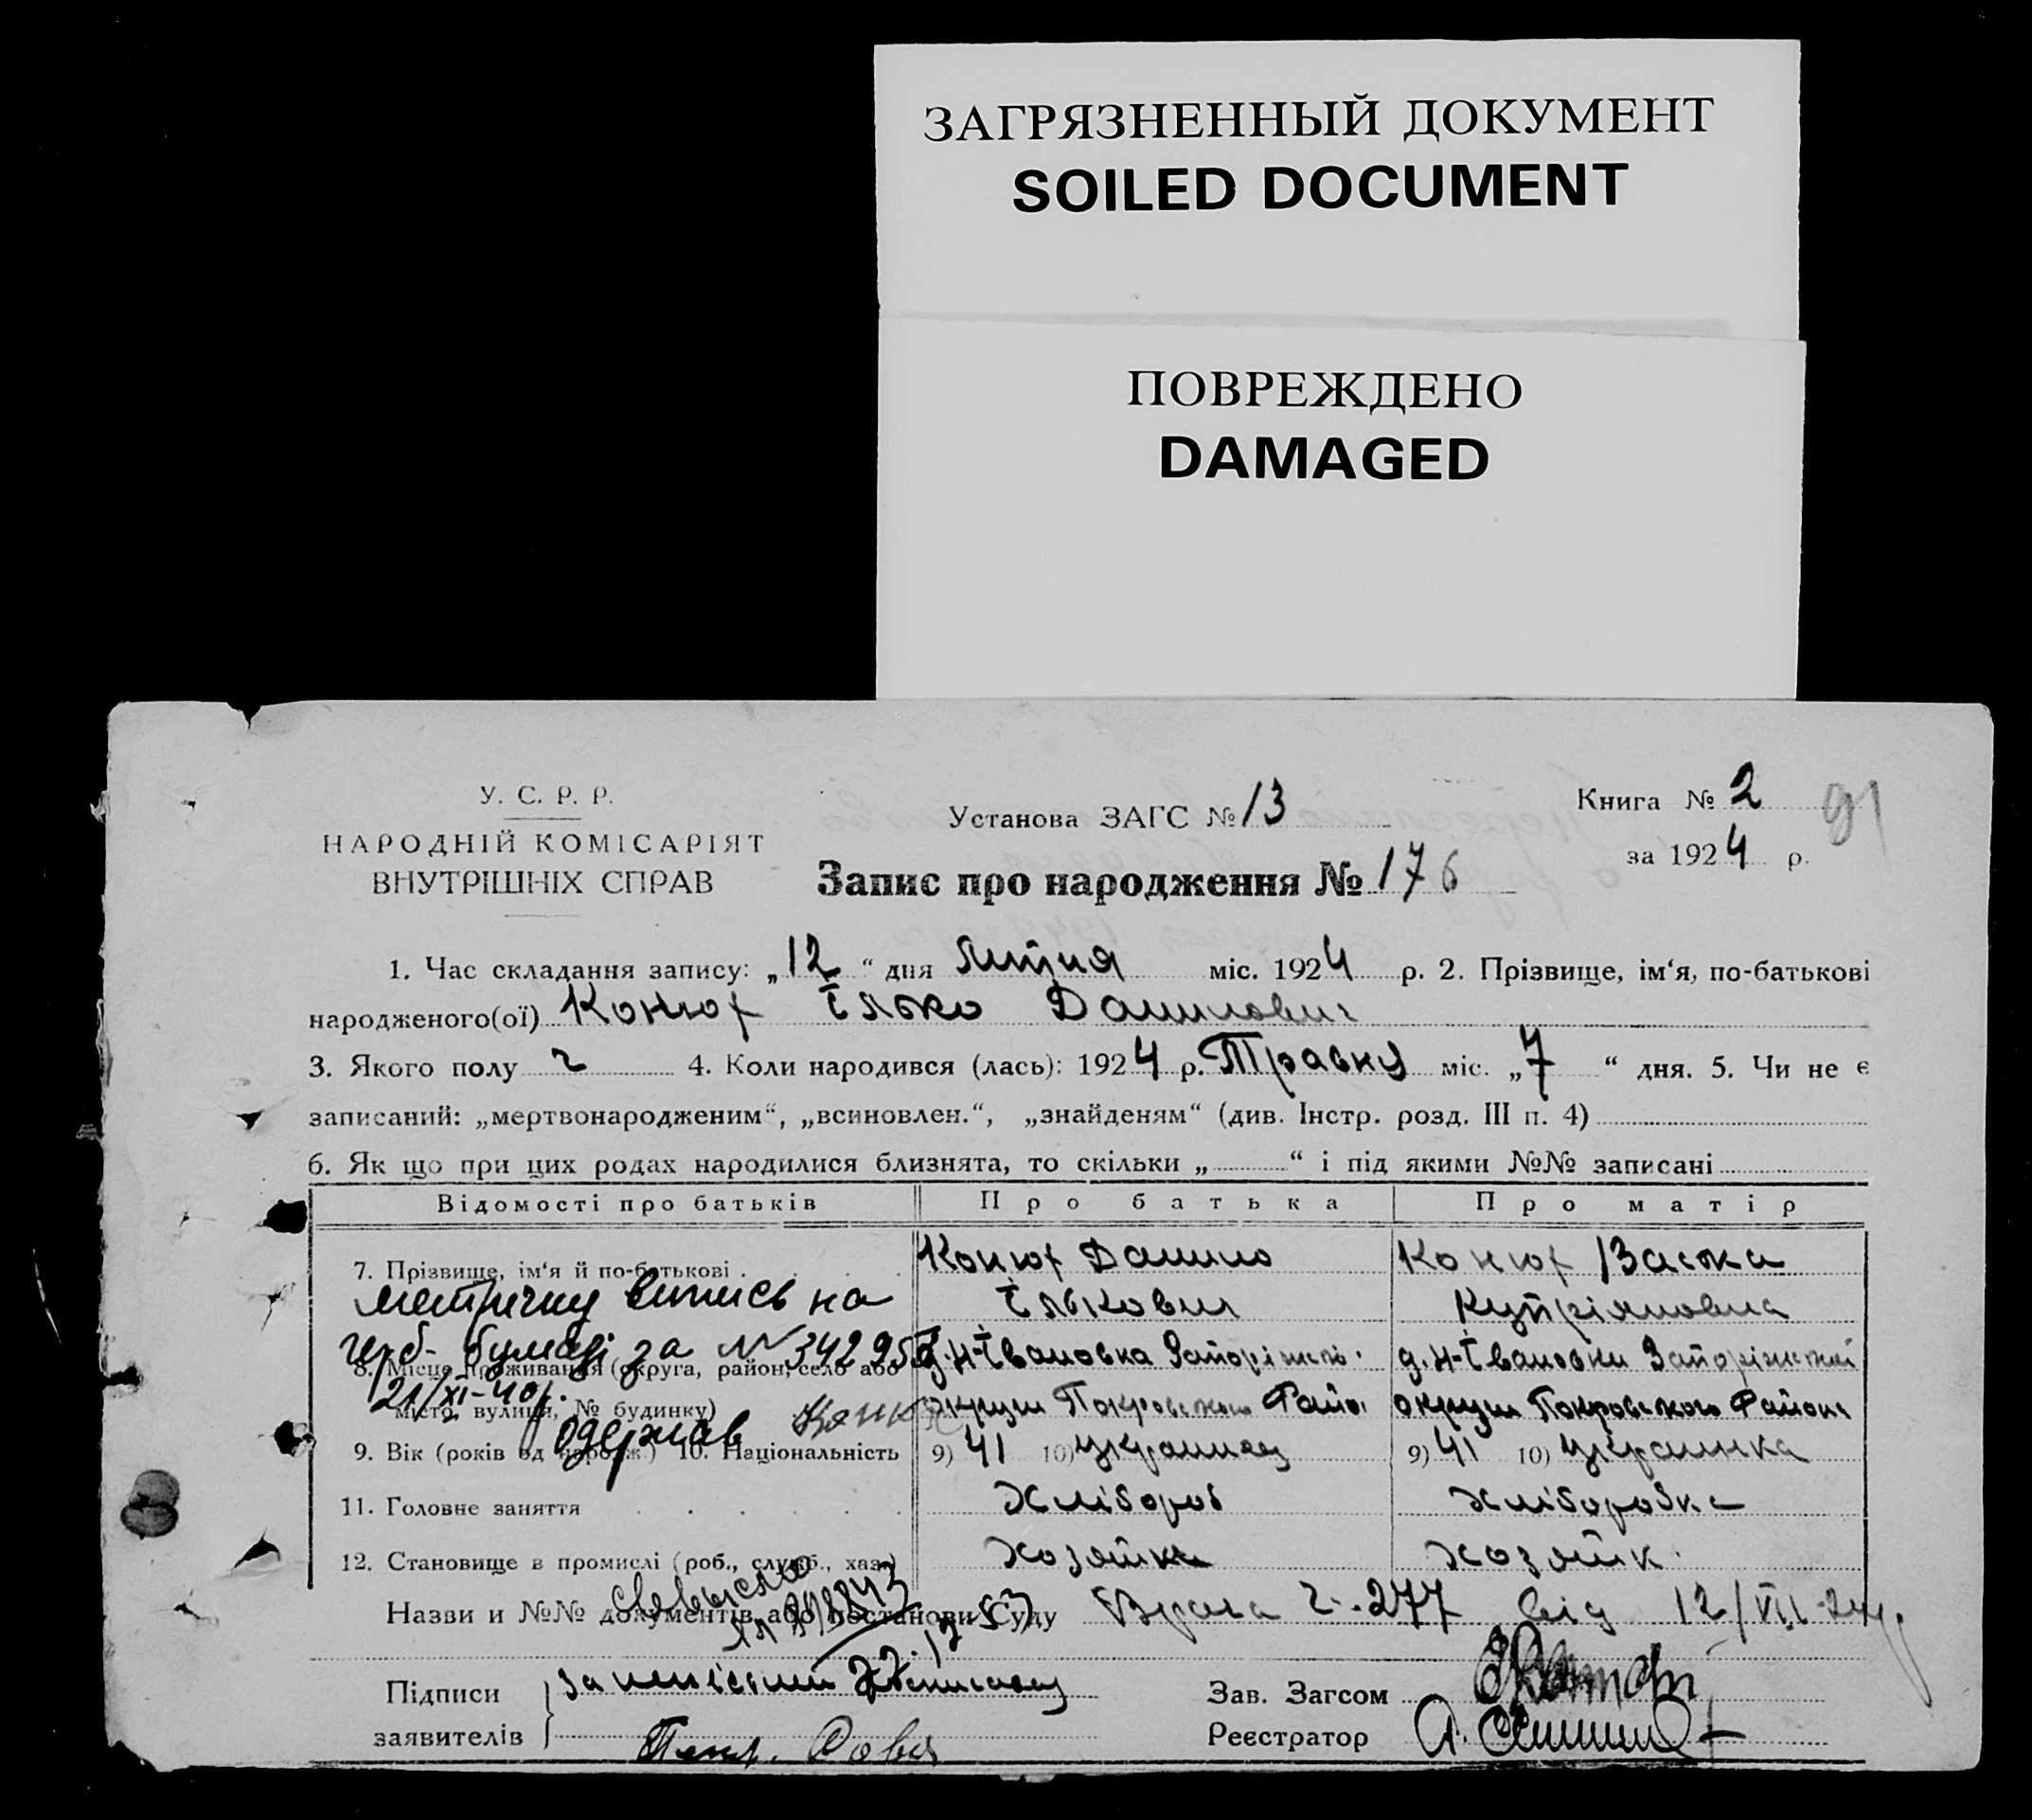 ЗАГРЯЗНЕННЫЙ ДОКУМЕНТ
SOILED DOCUMENT
ПОВРЕЖДЕНО
DAMAGED
У. С. Р. Р.
НАРОДНІЙ КОМІСАРІЯТ
ВНУТРІШНІХ СПРАВ
Установа ЗАГС № 13
Книга № 2
91
за 1924 р.
Запис про народження № 176
1. Час складання запису: „12“ дня Липня міс. 1924 р. 2. Прізвище, ім‘я, по-батькові
народженого(ої) Конюх Ілько Данилович
3. Якого полу ч 4. Коли народився (лась): 1924 р. Травну міс. „7“ дня. 5. Чи не є
записаний: „мертвонародженим“, „всиновлен.“, „знайденям“ (див. Інстр. розд. III п. 4)
6. Як що при цих родах народилися близнята, то скільки „ “ і під якими №№ записані
Відомості про батьків Про батька Про матір
7. Прізвище, ім‘я й по-батькові Конюх Данило Конюх Васька
метричну випись на Ількович Купріяновна
герб. бумазі за № 342295
8. Місце проживання (округа, район, село або д. Н-Івановка Запоріжської д. Н-Івановки Запоріжської
21/XI-40р.
місто, вулиця, № будинку) округи Покровського Райо. округи Покровського Района
одержав
9. Вік (років од народж.) 10. Національність 9) 41 10) українец 9) 41 10) українка
11. Головне заняття Хлібороб хліборобка
12. Становище в промислі (роб., служб., хаз.) хозяйка хозяйк.
Назви и №№ документів або постанови Суду Врача ч. 277 від 12/VII-24р.
Підписи заявителів
за
Зав. Загсом
Реєстратор